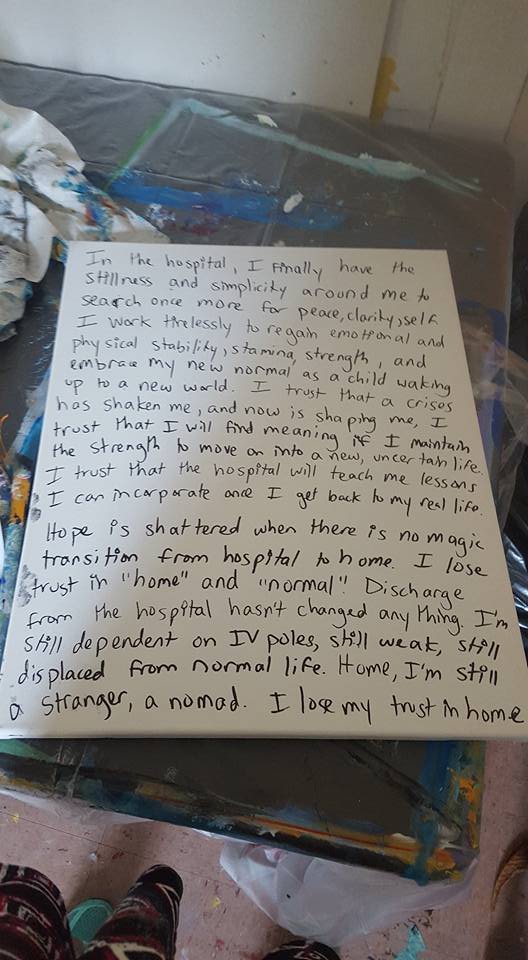 In the hospital, I finally have the
stillness and simplicity around me to
search once more for peace, clarity, self.
I work tirelessly to regain emotional and
physical stability, stamina, strength, and
embrace my new normal as a child waking
up to a new world. I trust that a crises
has shaken me, and now is shaping me, I
trust that I will find meaning if I maintain
the strength to move on into a new, uncertain life.
I trust that the hospital will teach me lessons
I can incorporate once I get back to my real life.
Hope is shattered when there is no magic
transition from hospital to home. I lose
trust in "home" and "normal". Discharge
from the hospital hasn't changed anything. I'm
still dependent on IV poles, still weak, still
displaced from normal life. Home, I'm still
a stranger, a nomad. I lose my trust in home